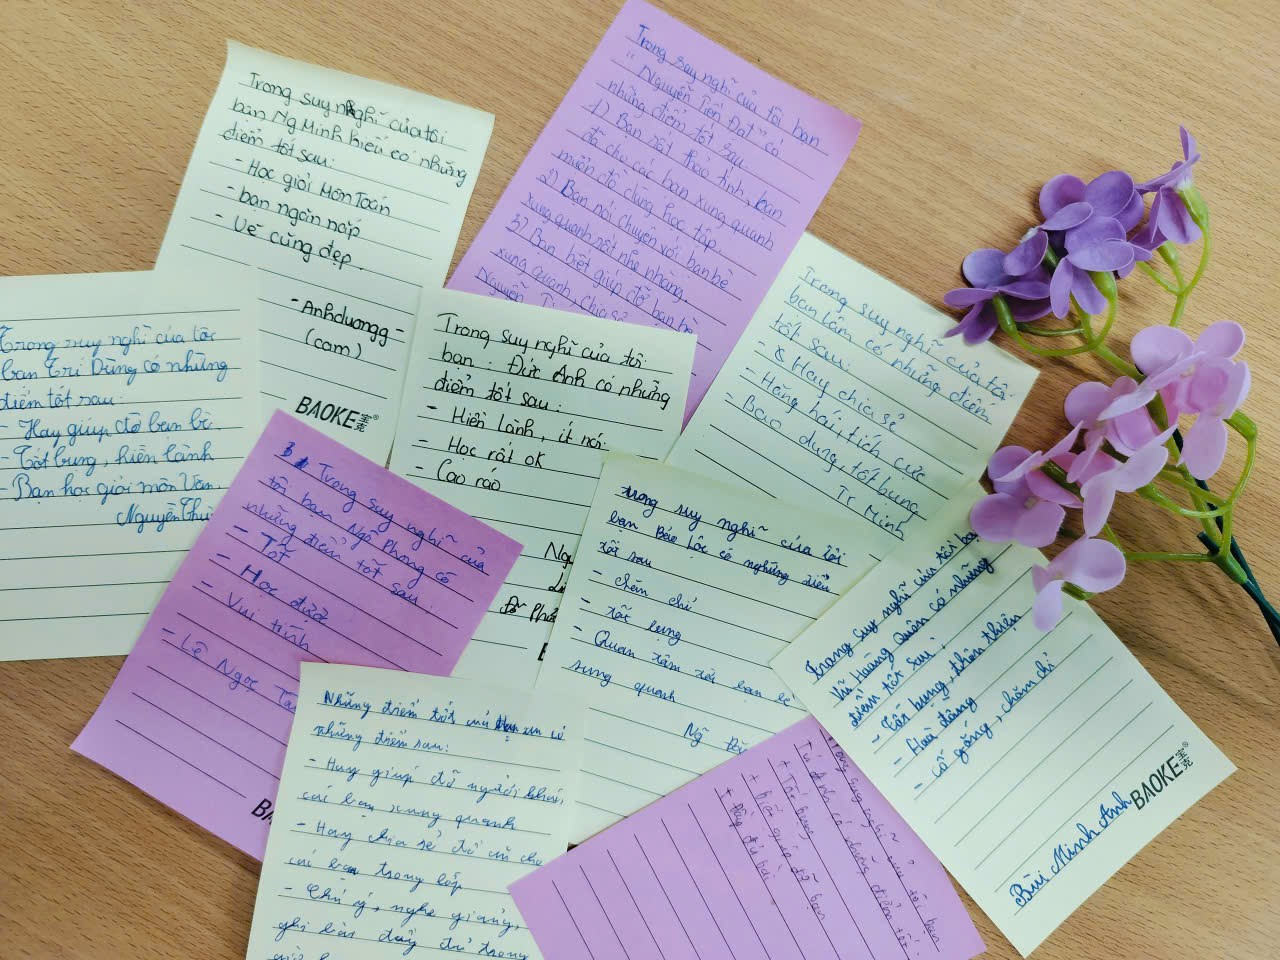 Trong suy nghĩ của tôi
bạn Ng Minh Hiếu có những
điểm tốt sau:
- Học giỏi Môn Toán
- bạn ngăn nắp
- Vẽ cũng đẹp.
- Anhduongg -
(cam)
BAOKE®
Trong suy nghĩ của tôi bạn
"Nguyễn Tiến Đạt" có
những điểm tốt sau
1) Bạn rất thảo tính, bạn
đã cho các bạn xung quanh
mượn đồ dùng học tập.
2) Bạn nói chuyện với bạn bè
xung quanh rất nhẹ nhàng.
3) Bạn biết giúp đỡ bạn bè
xung quanh, chia sẻ
Nguyễn
Trong suy nghĩ của tôi
bạn Lâm có những điểm
tốt sau:
- Hay chia sẻ
- Hăng hái, tích cực
- Bao dung, tốt bụng
Tr Minh
Trong suy nghĩ của tôi
bạn Trí Dũng có những
điểm tốt sau:
- Hay giúp đỡ bạn bè
- Tốt bụng, hiền lành
- Bạn học giỏi môn Văn.
Nguyễn
Trong suy nghĩ của tôi
bạn: Đức Anh có những
điểm tốt sau:
- Hiền lành, ít nói
- Học rất ok
- Cao ráo
Trong suy nghĩ của
tôi bạn Ngô Phong có
những điểm tốt sau.
- Tốt
- Học được
- Vui tính
- Lê Ngọc
trong suy nghĩ của tôi
bạn Bảo Lộc có những điểm
tốt sau
- chăm chỉ
- tốt bụng
- Quan tâm tới bạn bè
sung quanh
Trong suy nghĩ của tôi bạn
Vũ Hoàng Quân có những
điểm tốt sau:
- Tốt bụng, thân thiện
- Hoà đồng
- cố gắng, chăm chỉ
BAOKE®
Bùi Minh Anh
Những điểm tốt của
những điểm sau:
- Hay giúp đỡ người khác,
các bạn xung quanh
- Hay chia sẻ đồ ăn cho
các bạn trong lớp
- Chú ý, nghe giảng,
ghi bài đầy đủ trong
Trong suy nghĩ của tôi bạn
có những điểm tốt
+ Tốt bụng
+ giúp đỡ bạn